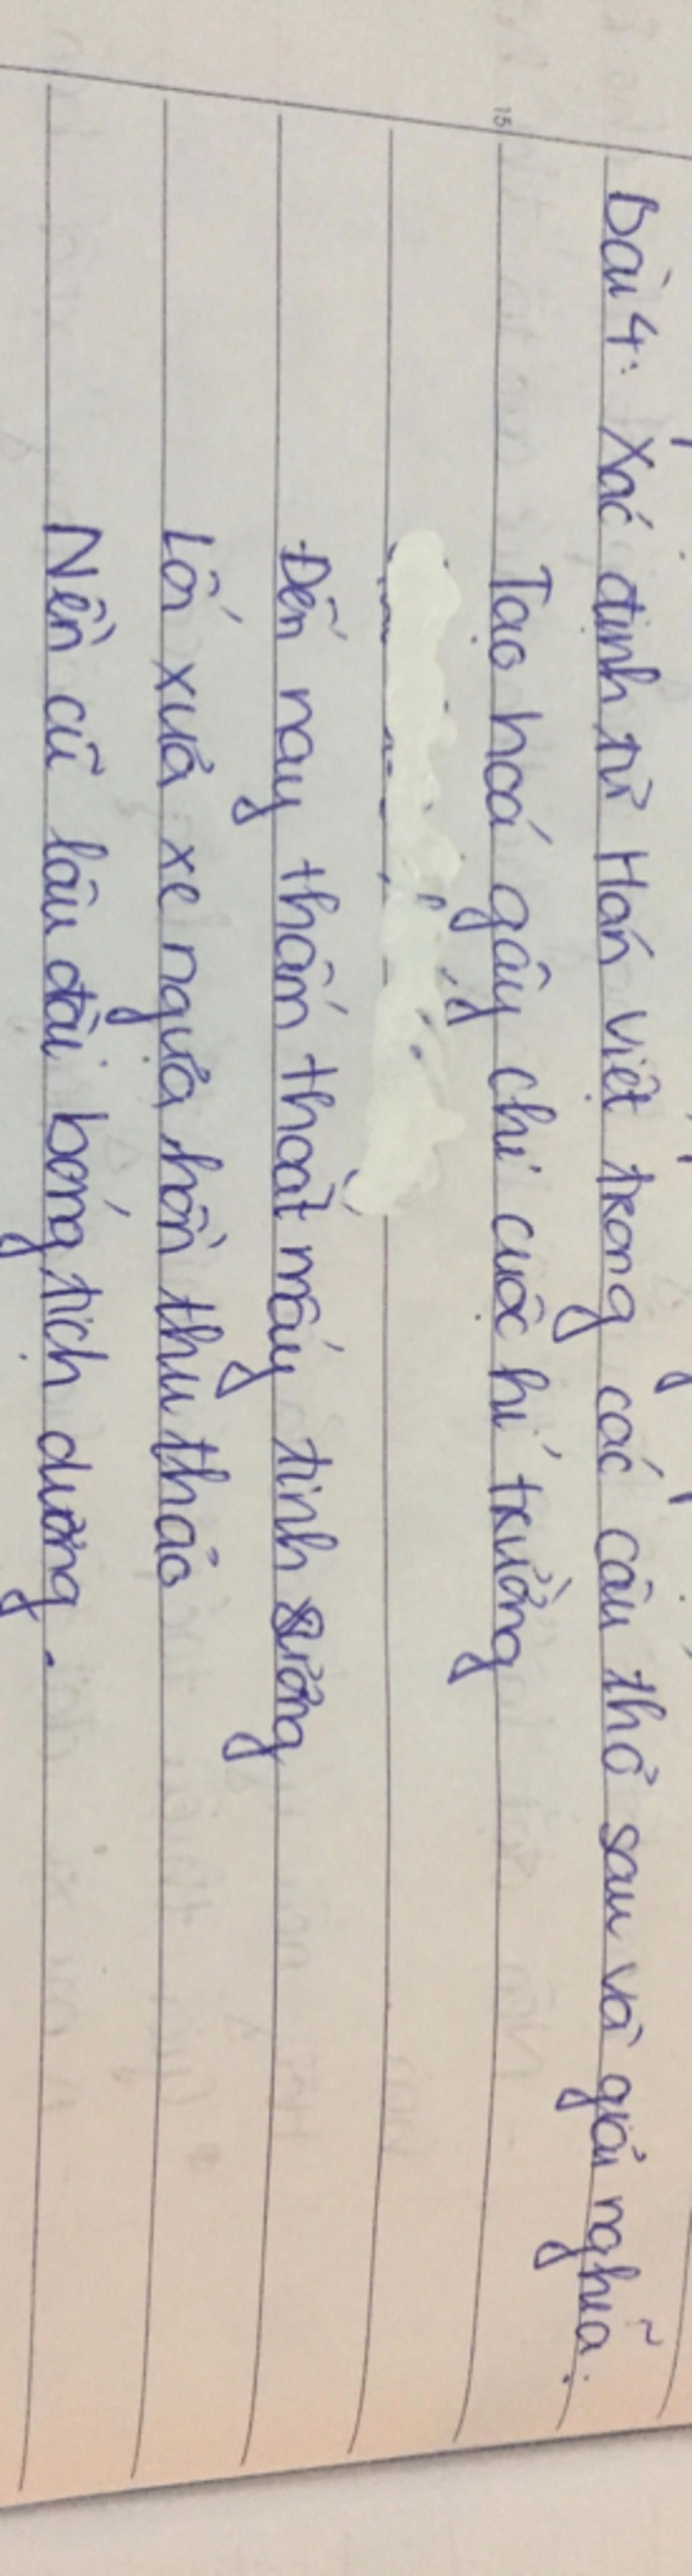 15
Bài 4: Xác định từ Hán việt trong các câu thơ sau và giải nghĩa.
Tạo hoá gây chi cuộc hí trường
Đến nay thấm thoắt mấy tinh sương
Lối xưa xe ngựa hồn thu thảo
Nền cũ lâu đài bóng tịch dương.